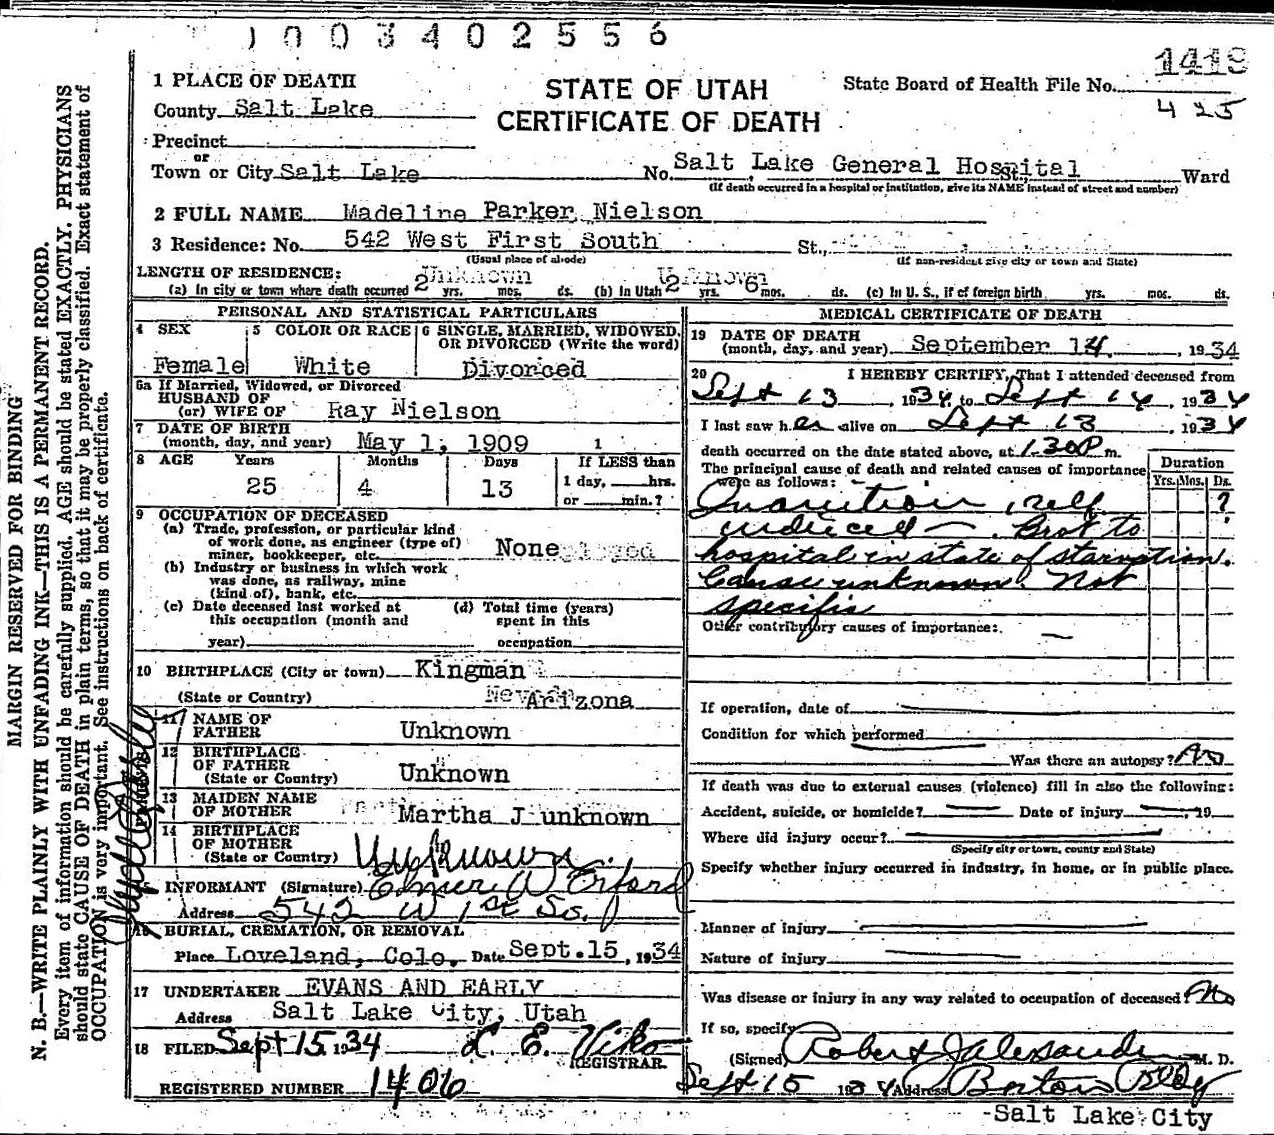 1003402556
1 PLACE OF DEATH
County Salt Lake
Precinct
or
Town or City Salt Lake
STATE OF UTAH
CERTIFICATE OF DEATH
State Board of Health File No. 1419
425
No. Salt Lake General Hospital St., Ward
(If death occurred in a hospital or institution, give its NAME instead of street and number)
2 FULL NAME Madeline Parker Nielson
3 Residence: No. 542 West First South St.,
(Usual place of abode) (If non-resident give city or town and State)
LENGTH OF RESIDENCE: Unknown Unknown
(a) In city or town where death occurred 2 yrs. mos. ds. (b) In Utah 2 yrs. 6 mos. ds. (c) In U. S., if of foreign birth yrs. mos. ds.
PERSONAL AND STATISTICAL PARTICULARS
4 SEX
Female
5 COLOR OR RACE
White
6 SINGLE, MARRIED, WIDOWED,
OR DIVORCED (Write the word)
Divorced
6a If Married, Widowed, or Divorced
HUSBAND OF
(or) WIFE OF Ray Nielson
7 DATE OF BIRTH
(month, day, and year) May 1, 1909 1
8 AGE Years Months Days If LESS than
25 4 13 1 day, hrs.
or min.?
9 OCCUPATION OF DECEASED
(a) Trade, profession, or particular kind
of work done, as engineer (type of)
miner, bookkeeper, etc. None
(b) Industry or business in which work
was done, as railway, mine
(kind of), bank, etc.
(c) Date deceased last worked at
this occupation (month and
year)
(d) Total time (years)
spent in this
occupation
10 BIRTHPLACE (City or town) Kingman
(State or Country) Nevada Arizona
11 NAME OF
FATHER Unknown
12 BIRTHPLACE
OF FATHER
(State or Country) Unknown
13 MAIDEN NAME
OF MOTHER Martha J unknown
14 BIRTHPLACE
OF MOTHER
(State or Country) Unknown
15 INFORMANT (Signature) Elmer W
Address 542 W 1st So.
16 BURIAL, CREMATION, OR REMOVAL
Place Loveland, Colo. Date Sept.15, 1934
17 UNDERTAKER EVANS AND EARLY
Address Salt Lake City, Utah
18 FILED Sept 15 1934 L. E. Viko
REGISTRAR.
REGISTERED NUMBER 1406
MEDICAL CERTIFICATE OF DEATH
19 DATE OF DEATH
(month, day, and year) September 14, 1934
20 I HEREBY CERTIFY, That I attended deceased from
Sept 13, 1934, to Sept 14, 1934
I last saw her alive on Sept 13, 1934
death occurred on the date stated above, at 1:30P m.
The principal cause of death and related causes of importance
were as follows:
Duration
Yrs. Mos. Ds.
Inanition, self ?
induced — Brot to
hospital in state of starvation.
Cause unknown. Not
specific
Other contributory causes of importance:
If operation, date of
Condition for which performed
Was there an autopsy? No
If death was due to external causes (violence) fill in also the following:
Accident, suicide, or homicide? Date of injury , 19
Where did injury occur?
(Specify city or town, county and State)
Specify whether injury occurred in industry, in home, or in public place.
Manner of injury
Nature of injury
Was disease or injury in any way related to occupation of deceased? No
If so, specify
(Signed) Robert J Alexander M. D.
Sept 15 1934 Address Boston Bldg
Salt Lake City
MARGIN RESERVED FOR BINDING
N. B.—WRITE PLAINLY WITH UNFADING INK—THIS IS A PERMANENT RECORD.
Every item of information should be carefully supplied. AGE should be stated EXACTLY. PHYSICIANS
should state CAUSE OF DEATH in plain terms, so that it may be properly classified. Exact statement of
OCCUPATION is very important. See instructions on back of certificate.